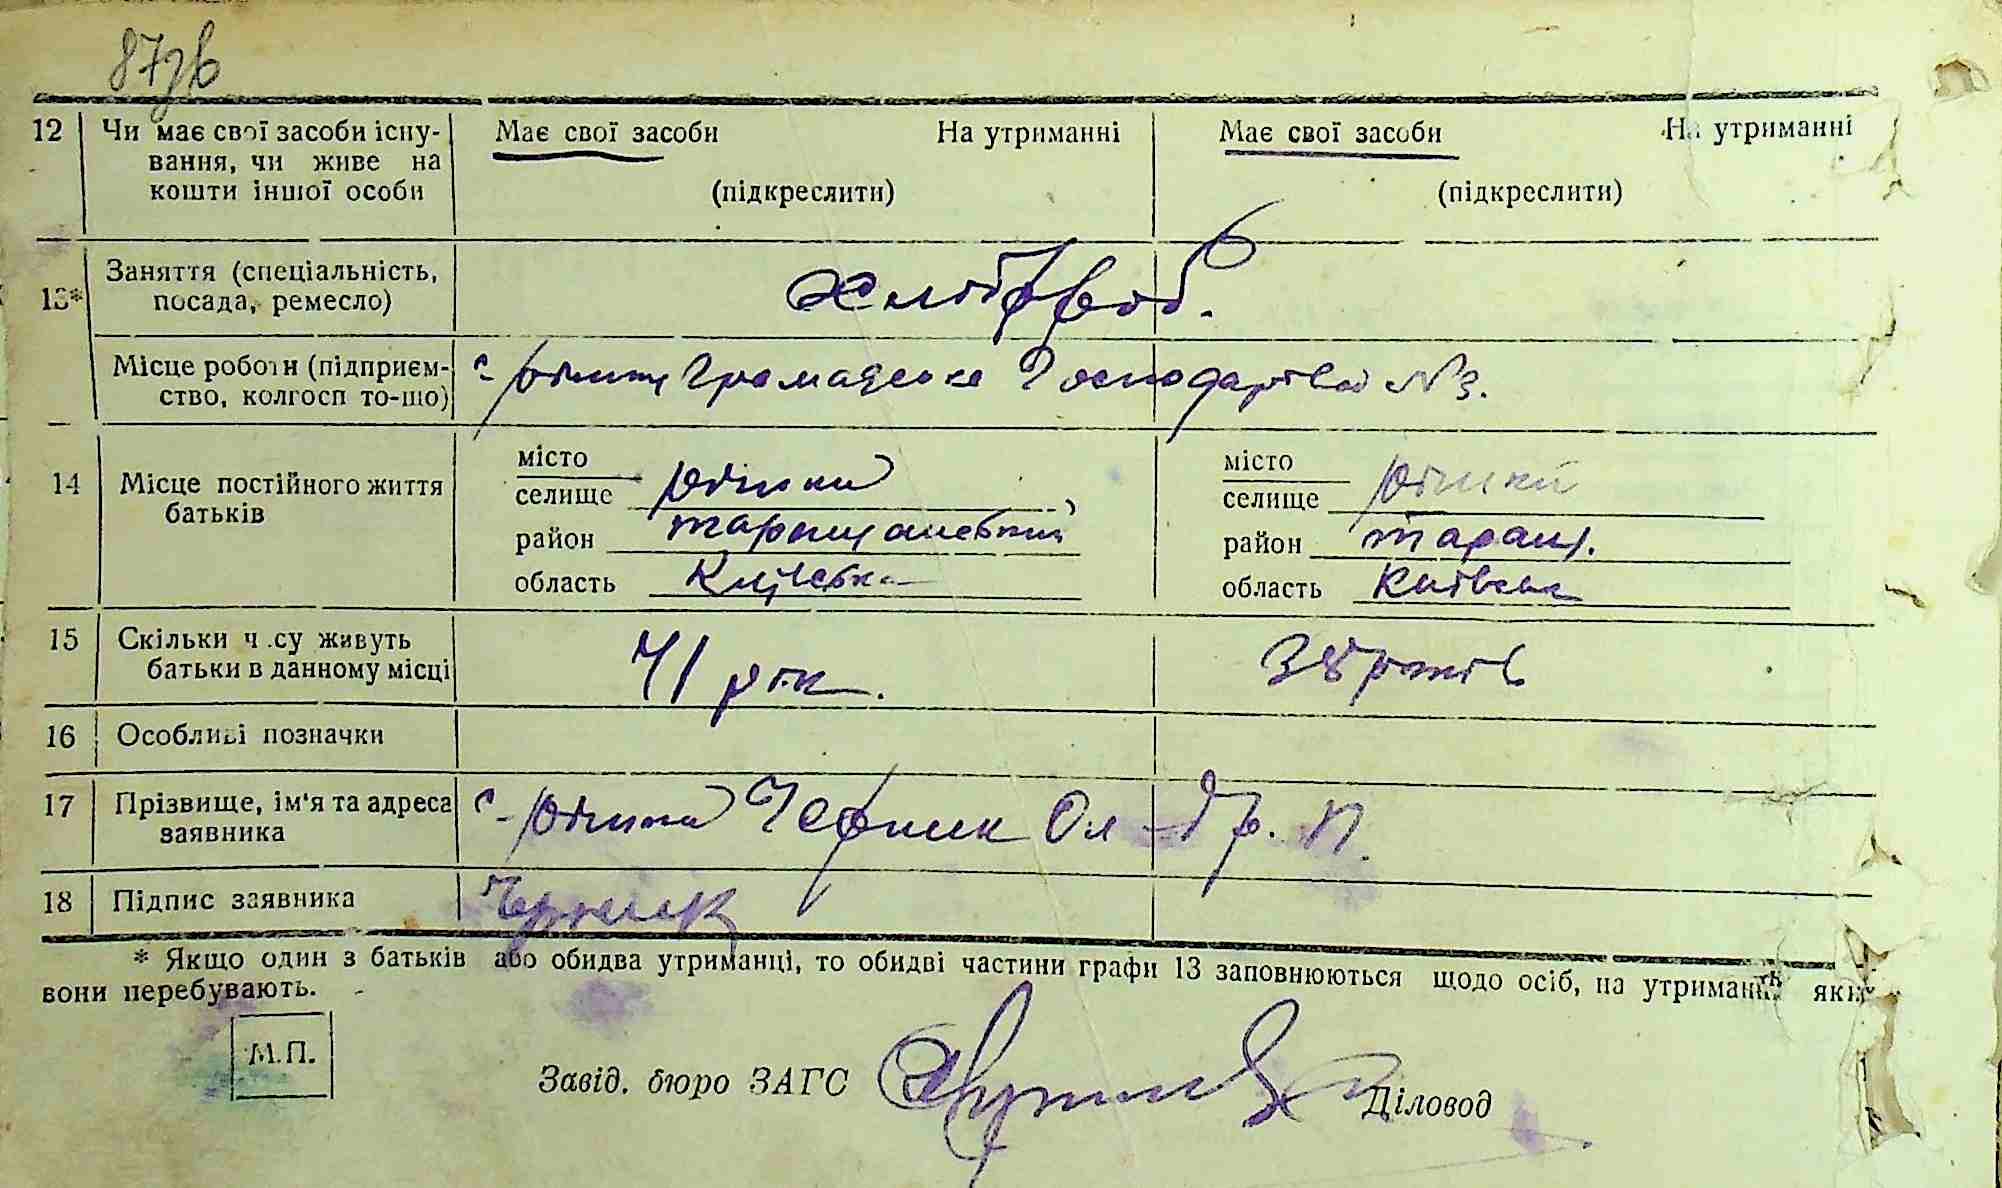 87зв
12 Чи має свої засоби існу- Має свої засоби На утриманні Має свої засоби На утриманні
вання, чи живе на
кошти іншої особи (підкреслити) (підкреслити)
13* Заняття (спеціальність,
посада, ремесло) Хлібороб.
Місце роботи (підприєм- с. Ріжки Громадське Господарство № 3.
ство, колгосп то-що)
14 Місце постійного життя
батьків
місто місто
селище Ріжки селище Ріжки
район Таращанський район Таращ.
область Київська область Київська
15 Скільки часу живуть
батьки в данному місці 41 рік. 38 років
16 Особливі позначки
17 Прізвище, ім'я та адреса с. Ріжки Черник Ол-др. П.
заявника
18 Підпис заявника Черник
* Якщо один з батьків або обидва утриманці, то обидві частини графи 13 заповнюються щодо осіб, на утриманні яких
вони перебувають.
М.П.
Завід. бюро ЗАГС Діловод